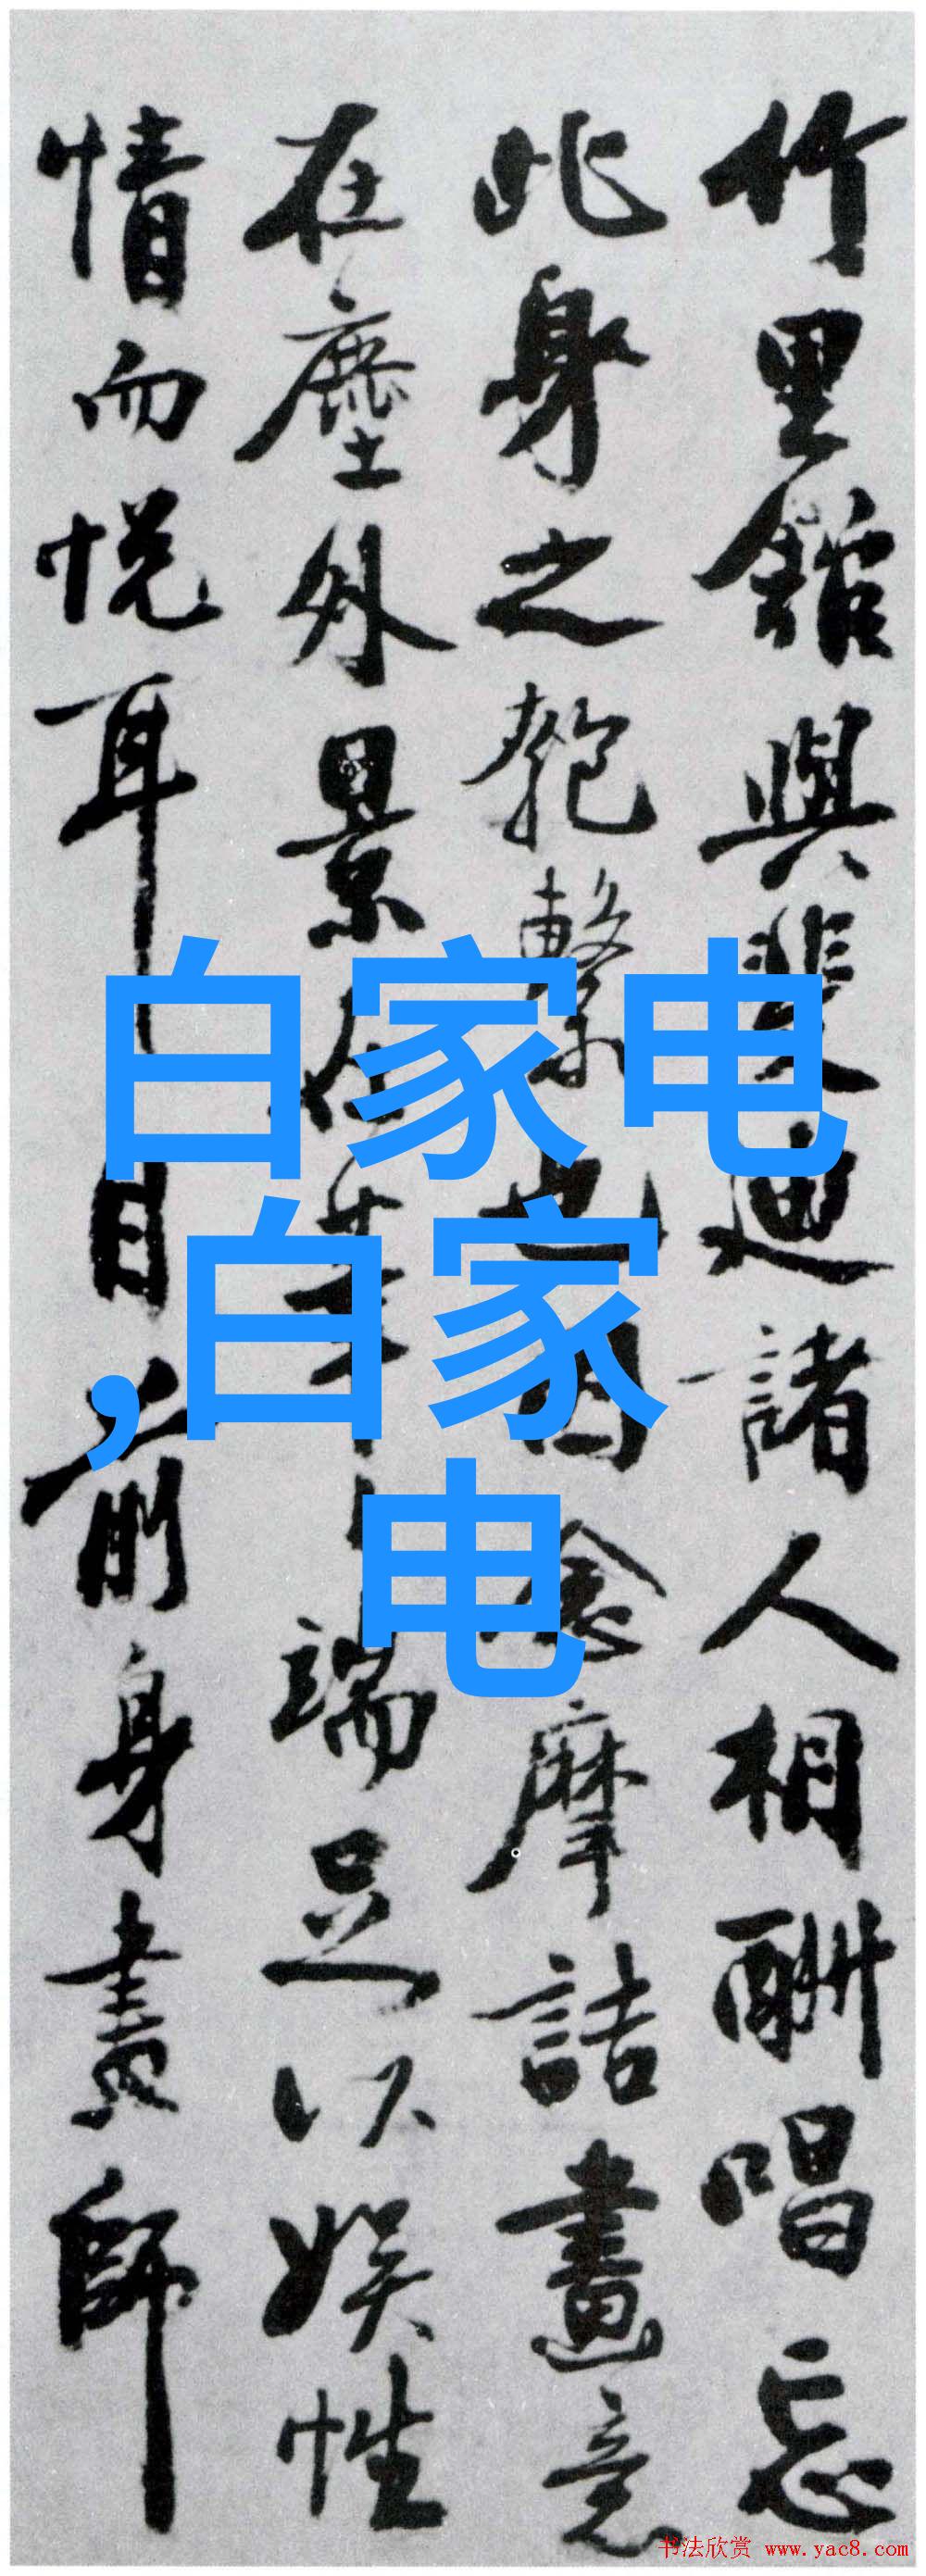 竹里館與裴迪諸人相酬唱忘
此身之匏繫也因念摩詰畫意
在塵外景在筆端足以娛性
情而悅耳目前身畫師
白家电
,白家
电
书法欣赏 www.yac8.com